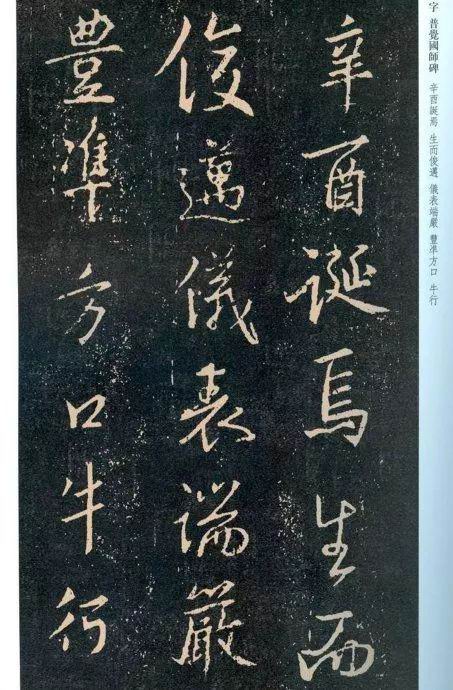 字 普覺國師碑 辛酉誕焉 生而俊邁 儀表端嚴 豐準方口 牛行
辛酉誕焉生而
俊邁儀表端嚴
豐準方口牛行